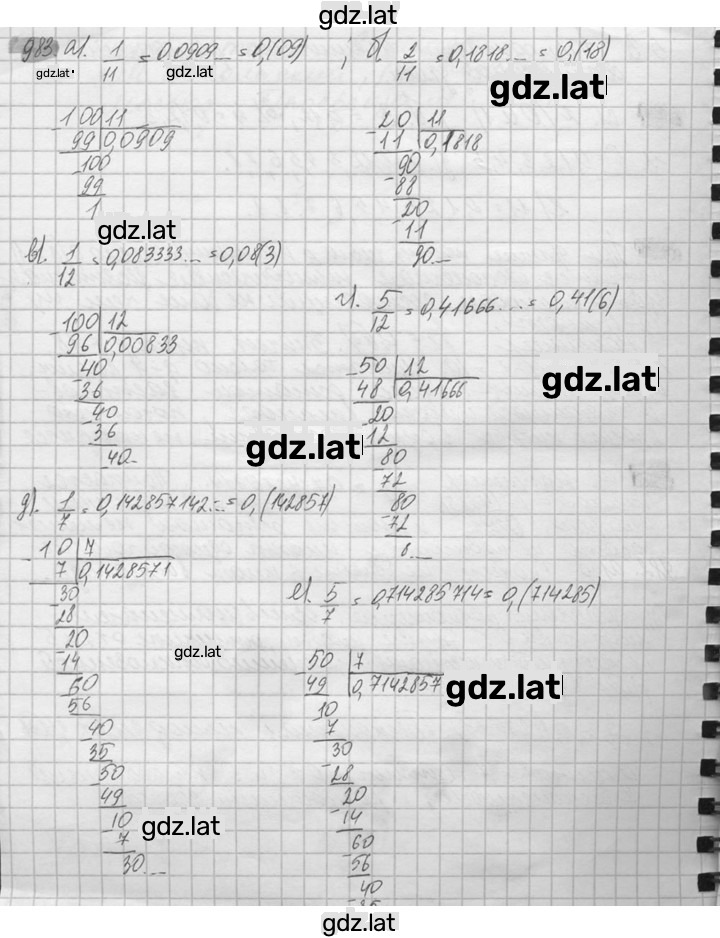 gdz.lat
983 а). 1/11 = 0.0909... = 0,(09) ; б). 2/11 = 0,1818... = 0,(18)
gdz.lat gdz.lat
gdz.lat
-100 11
99 0,0909
-100
99
1
-20 11
11 0,1818
-90
88
-20
11
90...
gdz.lat
в). 1/12 = 0,083333... = 0,08(3)
г). 5/12 = 0,41666... = 0,41(6)
-100 12
96 0,00833
-40
36
-40
36
40...
-50 12
48 0,41666
-20
12
-80
72
-80
72
8...
gdz.lat
gdz.lat
д). 1/7 = 0,142857142... = 0,(142857)
-10 7
7 0,1428571
-30
28
-20
14
-60
56
-40
35
-50
49
-10
7
30...
gdz.lat
е). 5/7 = 0,714285714 = 0,(714285)
-50 7
49 0,7142857
-10
7
-30
28
-20
14
-60
56
-40
35
gdz.lat
gdz.lat
gdz.lat